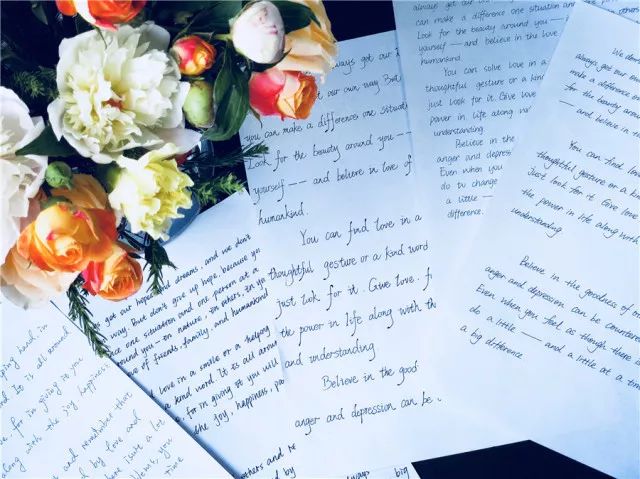 always got our
our own way. But
you can make a differences one situati
Look for the beauty around you —
yourself — and believe in love of
humankind.
You can find love in a
thoughtful gesture or a kind word
just look for it. Give love. f
the power in life along with th
and understanding
Believe in the good
anger and depression can be
always got our
can make a difference one situation and
Look for the beauty around you —
yourself — and believe in the love
humankind.
You can solve love in a
thoughtful gesture or a kind
just look for it. Give love
power in life along wi
understanding.
Believe in the
anger and depress
Even when you
do to change
a little —
difference.
others
We don't
always got our
make a difference
for the beauty
— and believe in
You can find love
thoughtful gesture or a kind
Just look for it Give love
the power in life along
understanding.
Believe in the goodness of
anger and depression can be countere
Even when you feel as though there
do a little — and a little at a
a big difference
got our hopes and dreams, and we don't
way. But don't give up hope, because you
one situation and one person at a
around you — in nature, in others, in yo
of friends, family, and humankind
love in a smile or a helping
a kind word. It is all arou
for in giving it you will
the joy, happiness, pa
others and re
always big
ping hand in
It is all around
for in giving it you
along with the joy happiness
and remember that
by love and
there isn't a lot
you
time